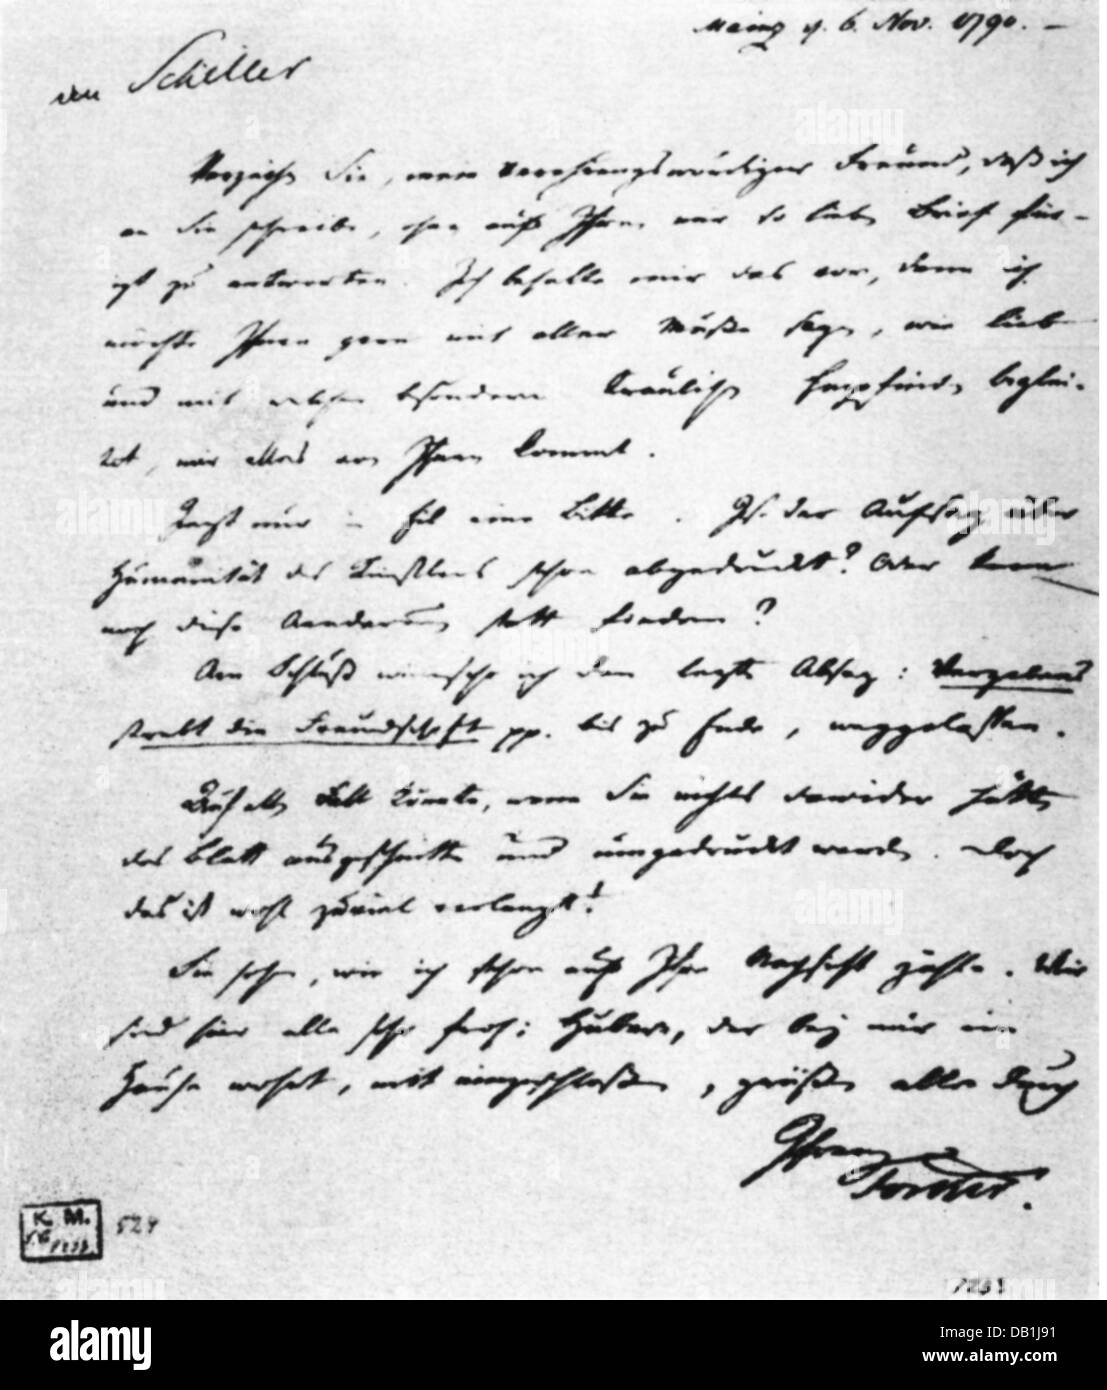 Mainz d. 6. Nov. 1790. –
an Schiller
Verzeihen Sie, mein verehrungswürdiger Freund, daß ich
an Sie schreibe, ohne auf Ihren mir so lieben Brief für-
izt zu antworten. Ich behalte mir das vor, denn ich
möchte Ihnen gern mit aller Muße sagen, wie lieb
und mit welchen besondern Empfinden beglei-
tet, mir alles von Ihnen kommt.
Jezt nur eine Bitte. Ist der Aufsaz über
Humanität des Künstlers schon abgedruckt? Oder kann
noch diese Aenderung statt finden?
Am Schluß wünsche ich den lezten Absaz: Vergebens
strebt die Freundschaft pp. bis zu Ende, weggelassen.
Auf allen Fall könnte, wenn Sie nichts dawider hätten
das Blatt ausgeschnitten und umgedruckt werden. Doch
das ist wohl zuviel verlangt!
Sie sehen, wie ich schon auf Ihre Nachsicht zähle. Wir
sind hier alle sehr froh; Huber, der bey mir im
Hause wohnt, mit eingeschloßen, grüßen alle durch
Ihren
Forster.
K. M.
529
alamy
Image ID: DB1J91
www.alamy.com